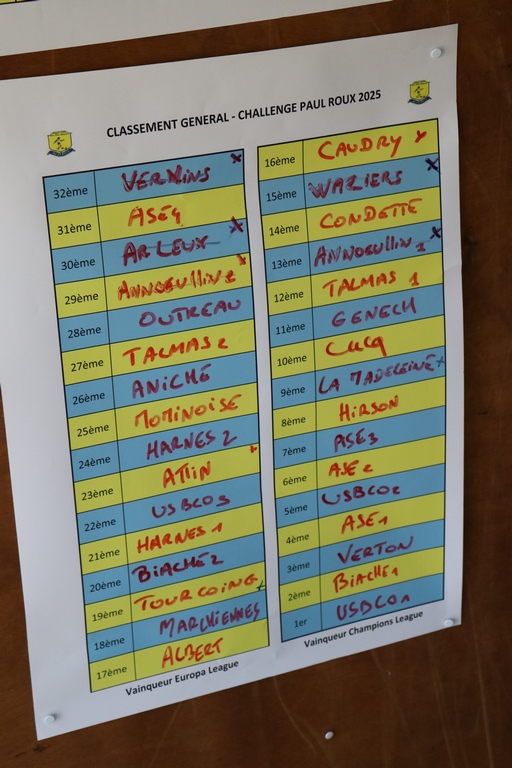 CLASSEMENT GENERAL - CHALLENGE PAUL ROUX 2025
32ème VERVINS x
31ème ASE4
30ème ARLEUX x
29ème ANNOEULLIN 2 x
28ème OUTREAU
27ème TALMAS 2
26ème ANICHÉ
25ème MOMINOISE
24ème HARNES 2
23ème ATTIN x
22ème USBCO3
21ème HARNES 1
20ème BIACHÉ 2
19ème TOURCOING x
18ème MARCHIENNES
17ème ALBERT
Vainqueur Europa League
16ème CAUDRY x
15ème WAZIERS x
14ème CONDETTE
13ème ANNOEULLIN 1 x
12ème TALMAS 1
11ème GENECH
10ème CUCQ
9ème LA MADELEINE x
8ème HIRSON
7ème ASE3
6ème ASE2
5ème USBCO2
4ème ASE1
3ème VERTON
2ème BIACHE 1
1er USBCO1
Vainqueur Champions League